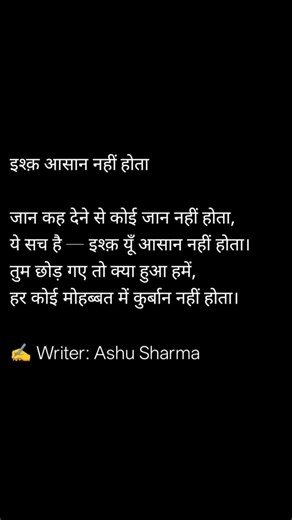 इश्क़ आसान नहीं होता
जान कह देने से कोई जान नहीं होता,
ये सच है — इश्क़ यूँ आसान नहीं होता।
तुम छोड़ गए तो क्या हुआ हमें,
हर कोई मोहब्बत में कुर्बान नहीं होता।
✍️ Writer: Ashu Sharma